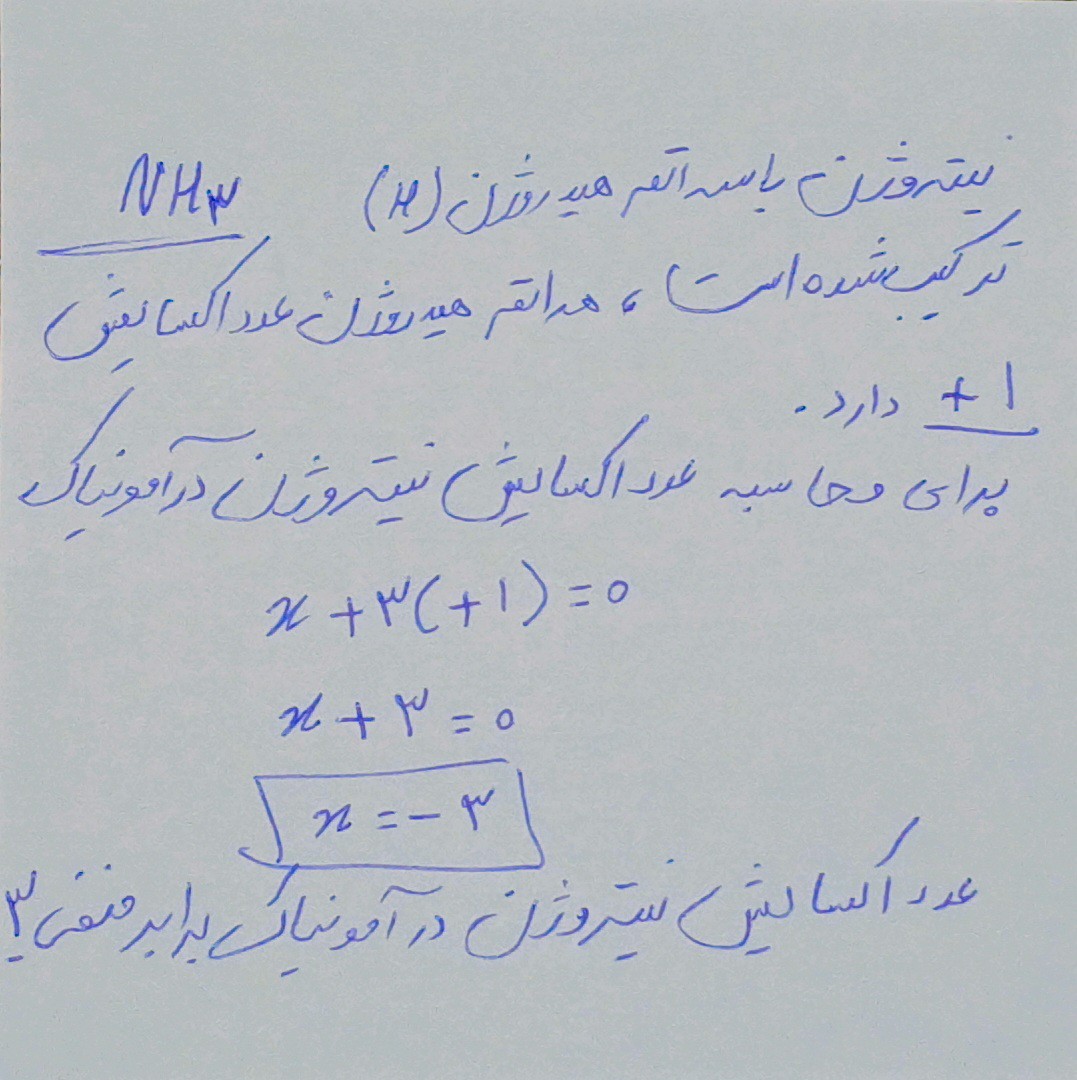 نیتروژن با سه اتم هیدروژن (H) NH۳
ترکیب شده است، هر اتم هیدروژن عدد اکسایش
+۱ دارد.
برای محاسبه عدد اکسایش نیتروژن در آمونیاک
x + ۳(+۱) = ۰
x + ۳ = ۰
x = -۳
عدد اکسایش نیتروژن در آمونیاک برابر منفی ۳